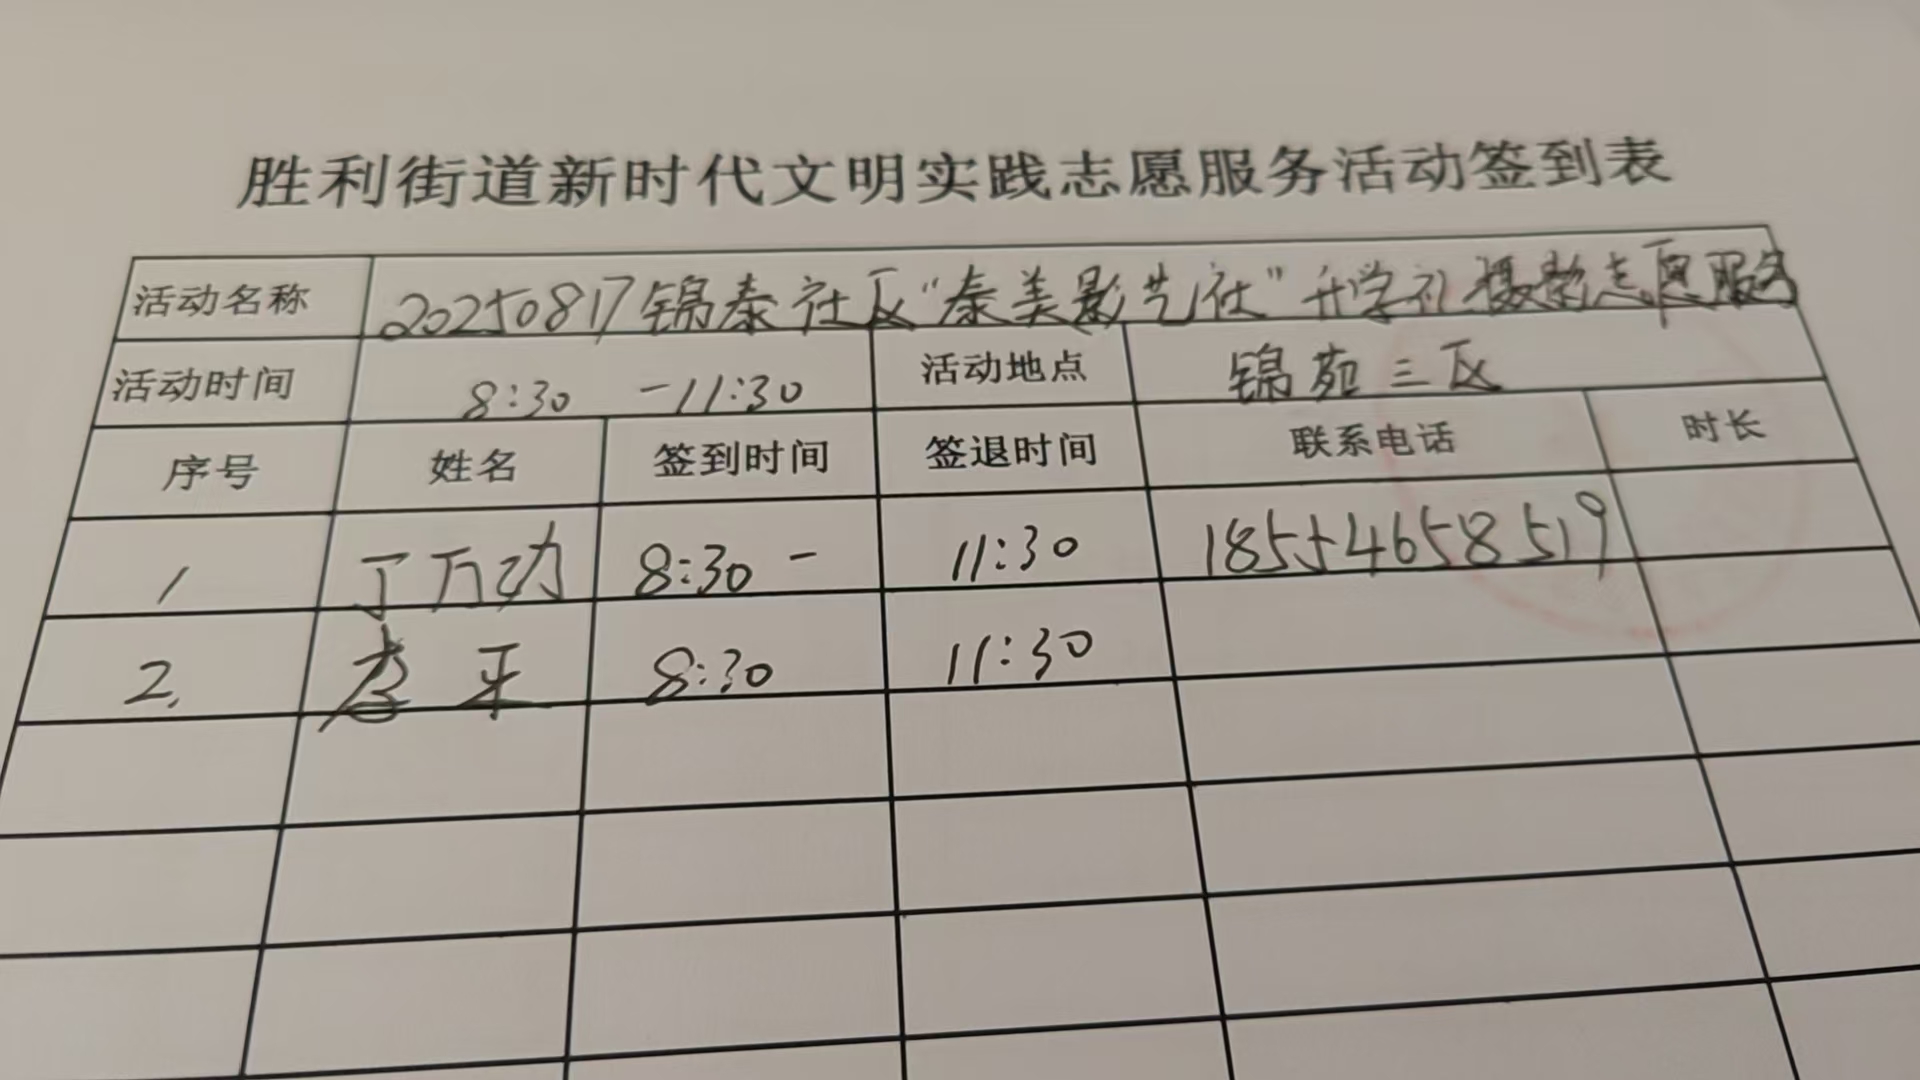 胜利街道新时代文明实践志愿服务活动签到表
活动名称 20250817锦泰社区“泰美影艺社”升学礼摄影志愿服务
活动时间 8:30 -11:30 活动地点 锦苑三区
序号 姓名 签到时间 签退时间 联系电话 时长
1 丁万功 8:30 - 11:30 18554658519
2. 8:30 11:30